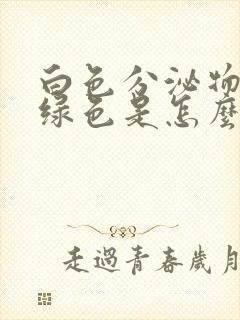 白色分泌物
绿色是怎麼
走過青春歲月